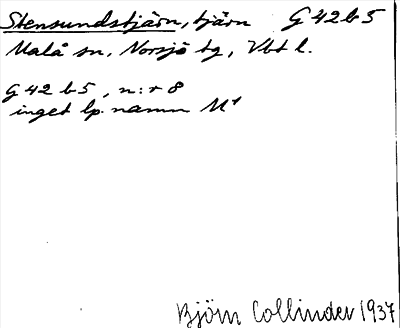 Stensundstjärn, tjärn G 42 b 5
Malå sn, Norsjö tg, Vbt l.
G 42 b 5, n:r 8
inget lp. namn M¹
Björn Collinder 1937